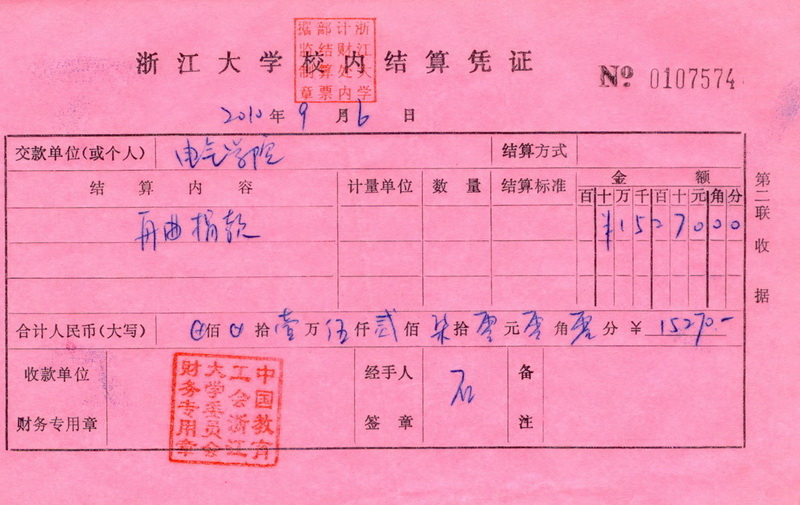 浙江大学计财处内部结算票据监制章
浙江大学校内结算凭证
№ 0107574
2010 年 9 月 6 日
交款单位(或个人) 电气学院 结算方式
结算内容 计量单位 数量 结算标准 金额
百 十 万 千 百 十 元 角 分
舟曲捐款 ¥1527000
合计人民币(大写) 0佰 0拾 壹万 伍仟 贰佰 柒拾 零元 零角 零分 ¥ 15270.-
收款单位 财务专用章
中国教育工会浙江大学委员会财务专用章
经手人 签章 石
备注
第二联 收据